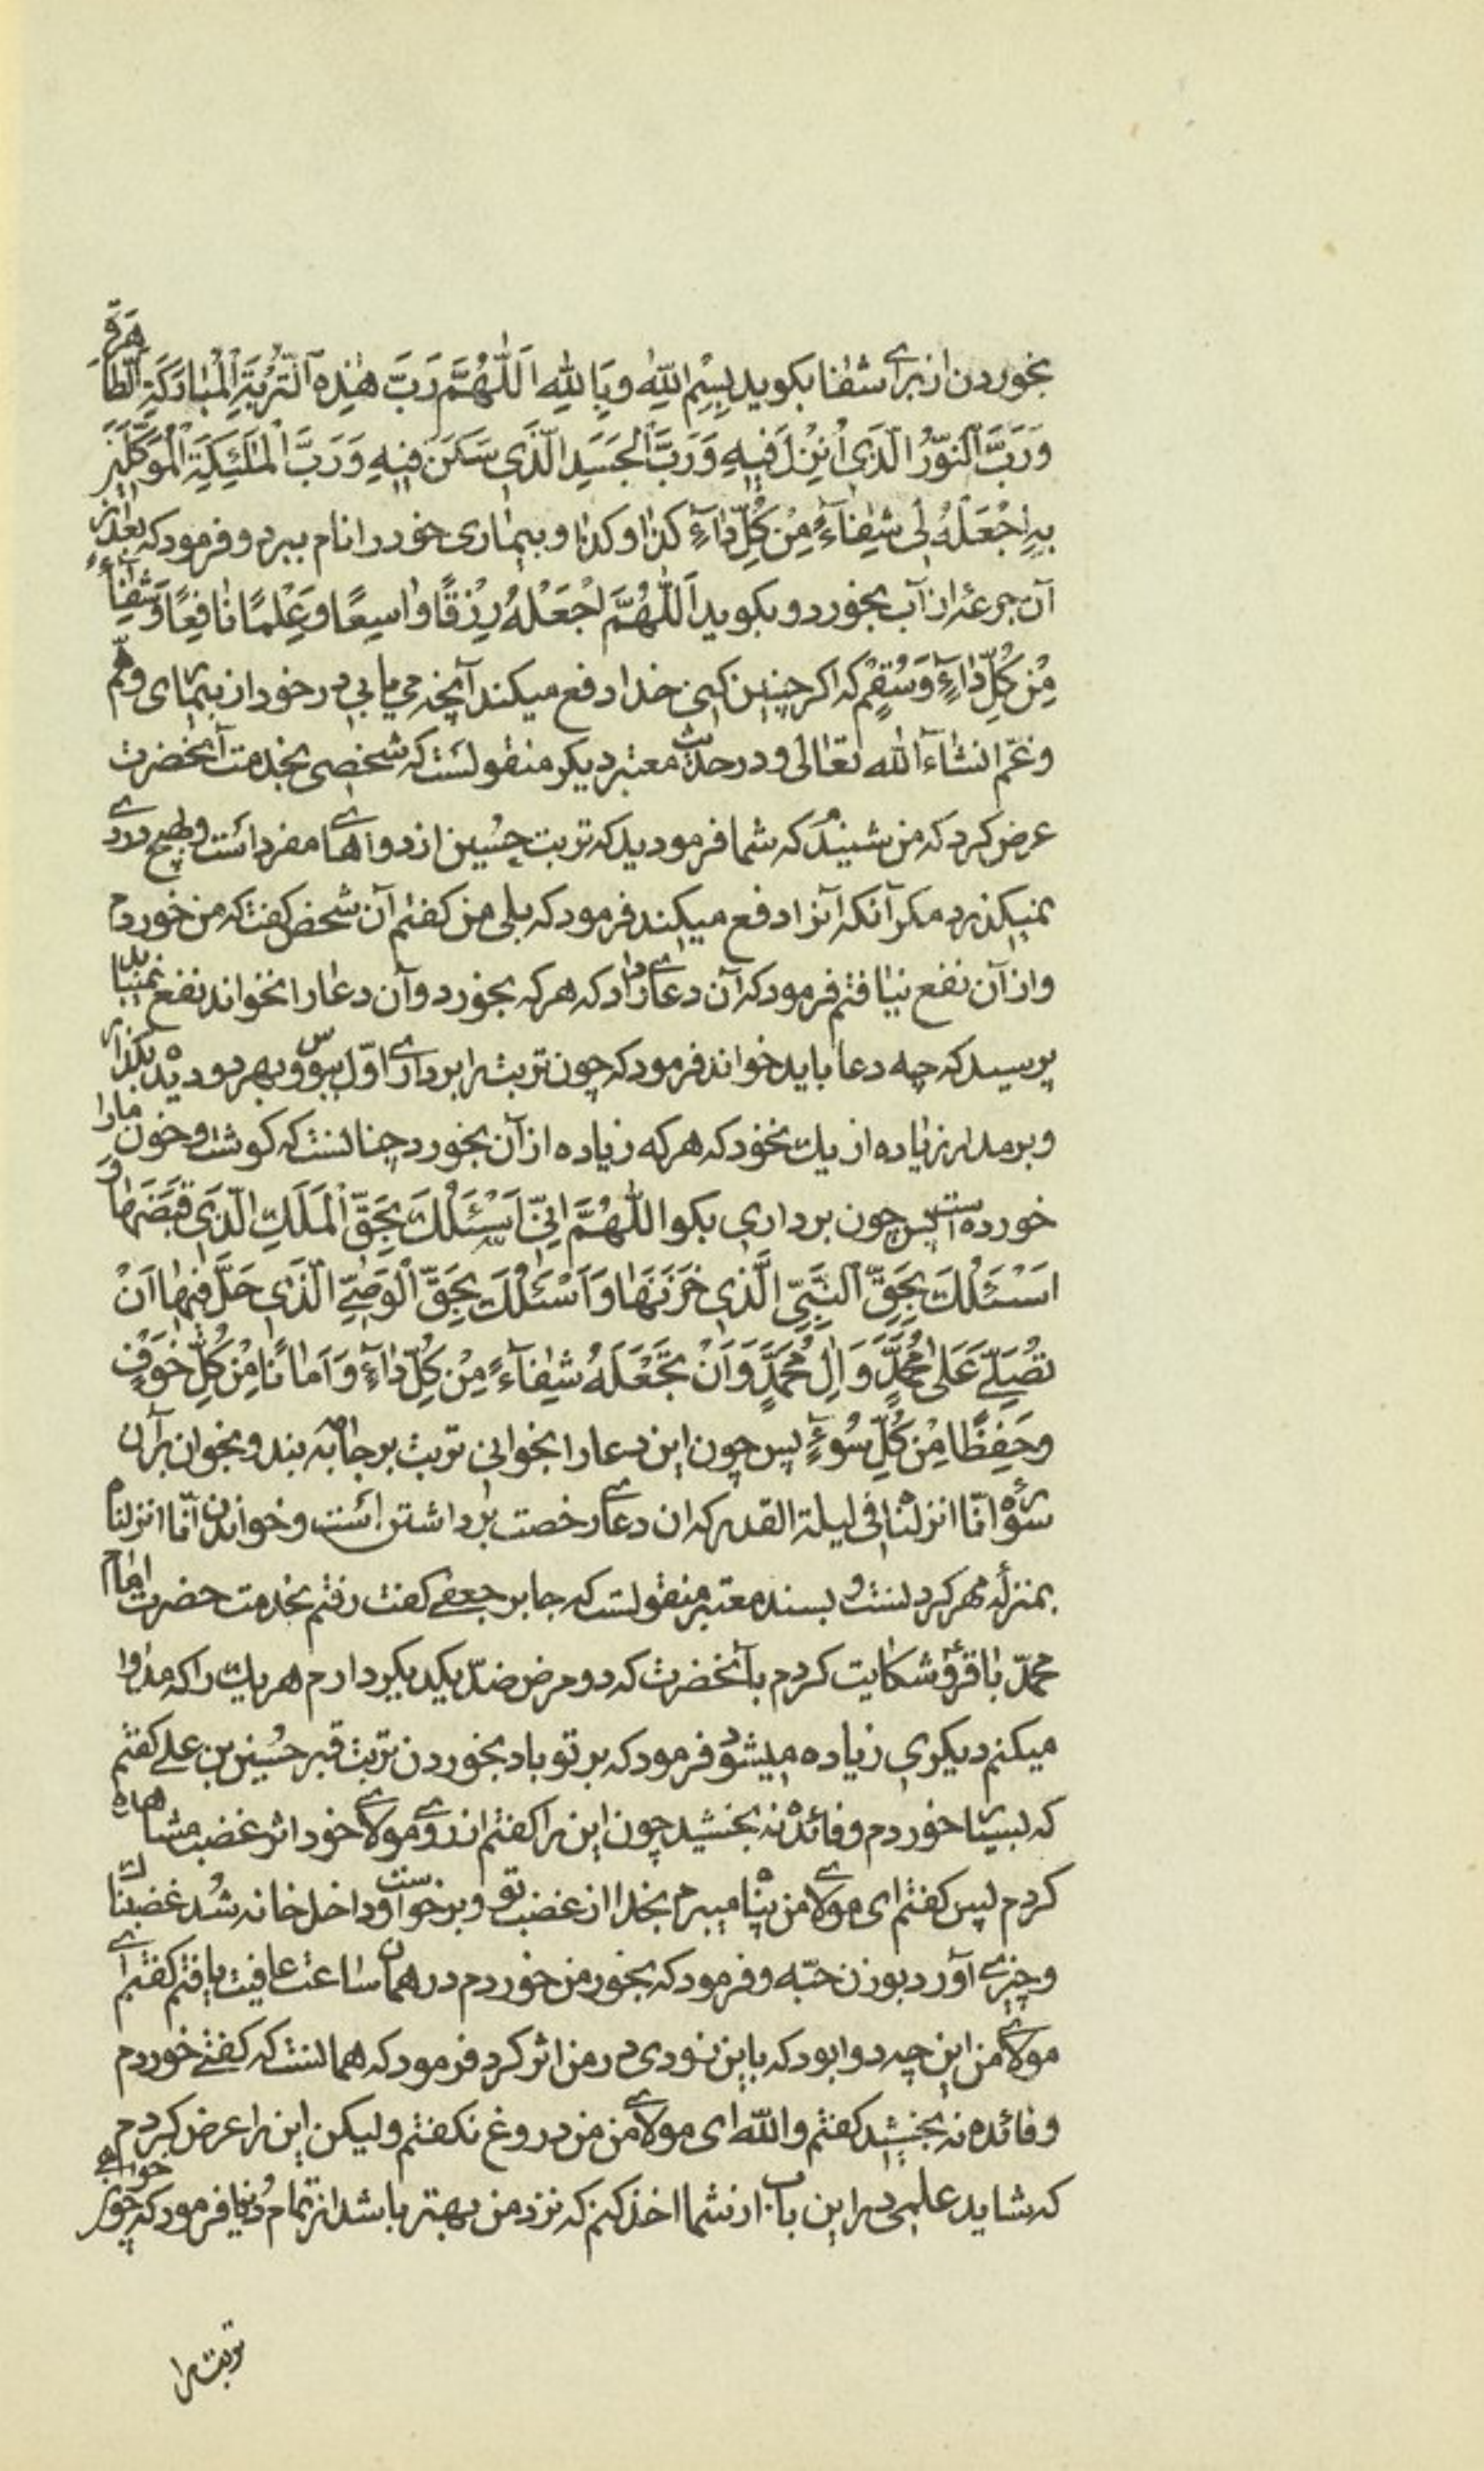 بخوردن از برای شفا بکوید بِسْمِ اللهِ وَبِاللهِ اَللّٰهُمَّ رَبَّ هٰذِهِ التُّرْبَةِ الْمُبارَكَةِ الطّاهَرَةِ
وَرَبَّ النّوُرِ الَّذَى اُنْزِلَ فيهِ وَرَبَّ الْجَسَدِ الَّذَى سَكَنَ فيهِ وَرَبَّ الْمَلٰئِكَةِ الْمُوَكَّلينَ
بِهِ اجْعَلْهُ لى شِفٰآءً مِنْ كُلِّ دٰآءِ كذا وكذا و بیماری خود را نام ببرد و فرمود که بعد از
آن جرعهٔ از آب بخورد و بکوید اَللّٰهُمَّ اجْعَلْهُ رِزْقًا واسِعًا وَعِلْمًا نافِعًا وَشِفٰآءً
مِنْ كُلِّ دٰآءٍ وَسُقْمٍ که اکر چنین کنی خدا دفع میکند آنچه می یابی در خود از بیماری و همّ
و غمّ انشآءالله تعالی و در حدیث معتبر دیکر منقولست که شخصی بخدمت آنحضرت
عرض کرد که من شنیدم که شما فرمودید که تربت حسین از دواهای مفرد است و بهیچ دردی
نمیکذرد مکر آنکه آنرا دفع میکند فرمود که بلی من کفتم آن شخص کفت که من خوردم
و از آن نفع نیافتم فرمود که آن دعای دارد که هر که بخورد و آن دعا را نخواند نفع نمییابد
پرسید که چه دعا باید خواند فرمود که چون تربت را برداری اوّل ببوس و بهر دو دیده بکذار
و بر مدار زیاده از یک نخود که هر که زیاده از آن بخورد چنانست که کوشت و خون مارا
خورده است پس چون برداری بکو اللّٰهُمَّ اِنّى اَسْئَلُكَ بِحَقِّ الْمَلَكِ الَّذَى قَبَضَهٰا وَ
اسَئَلُكَ بِحَقِّ النَّبِىِّ الَّذى خَزَنَهٰا وَاَسْئَلُكَ بِحَقِّ الْوَصِىِّ الَّذَى حَلَّ فيهٰا اَنْ
تُصَلِّىَ عَلىٰ مُحَمَّدٍ وَ اٰلِ مُحَمَّدٍ وَاَنْ تَجْعَلَهُ شِفٰآءً مِنْ كُلِّ دٰآءٍ وَ اَمانًا مِنْ كُلِّ خَوْفٍ
وحِفِظًا مِنْ كُلِّ سُوءٍ پس چون این دعا را بخوانی تربت بر جامه بند و بخوان بر آن
سورهٔ انّا انزلناه فی لیلة القدر که ان دعای رخصت برداشتن است و خواندن انّا انزلناه
بمنزلهٔ مهر کردنست و بسند معتبر منقولست که جابر جعفی کفت رفتم بخدمت حضرت امام
محمّد باقر و شکایت کردم بآنحضرت که دو مرض ضدّ یکدیکر دارم هر یک را که مداوا
میکنم دیکری زیاده میشود فرمود که بر تو باد بخوردن تربت قبر حسین بن علی کفتم
که بسیار خوردم و فائده نه بخشید چون این را کفتم از روی مولای خود اثر غضب مشاهده
کردم پس کفتم ای مولای من پناه میبرم بخدا از غضب تو و برخواست و داخل خانه شد غضبناک
و چیزی آورد بوزن حبّه و فرمود که بخور من خوردم در همان ساعت عافیت یافتم کفتم ای
مولای من این چه دوا بود که باین زودی در من اثر کرد فرمود که همانست که کفتی خوردم
و فائده نه بخشید کفتم والله ای مولای من من دروغ نکفتم و لیکن این را عرض کردم
که شاید علمی در این باب از شما اخذ کنم که نزد من بهتر باشد از تمام دنیا فرمود که چون خواهی
تربت را